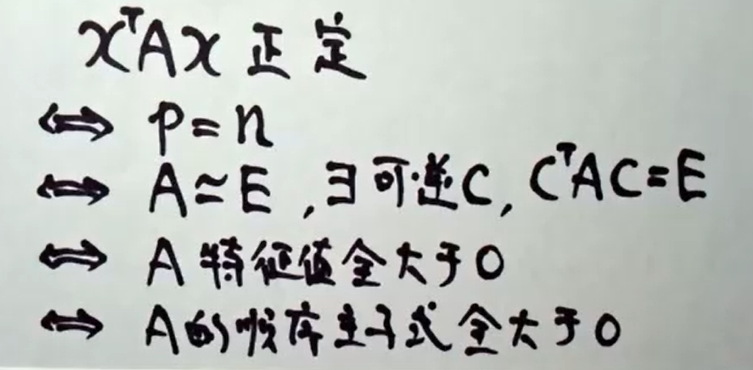 xᵀAx 正定
⟺ p=n
⟺ A≃E ,∃可逆C, CᵀAC=E
⟺ A 特征值全大于0
⟺ A的顺序主子式全大于0